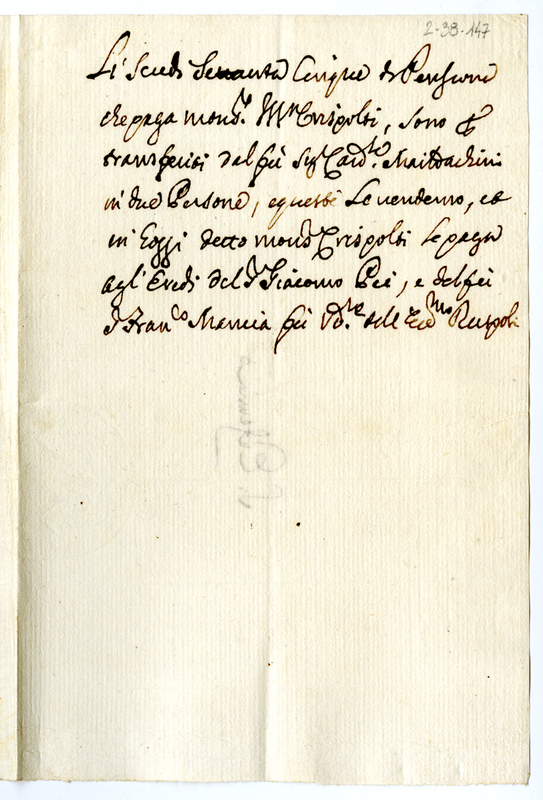 2-38-147
Li Scudi Settanta Cinque di Pensione
che paga mons.r Crispolti, sono
transferiti dal fù Sig.r Card.le Maidachini
in due Persone, e queste le venderno, et
in oggi detto mons.r Crispolti le paga
agl'Eredi del S.r Giacomo Pei, e del fù
S. Fran.co Mancia fù dell'Ecc.mo Ruspoli